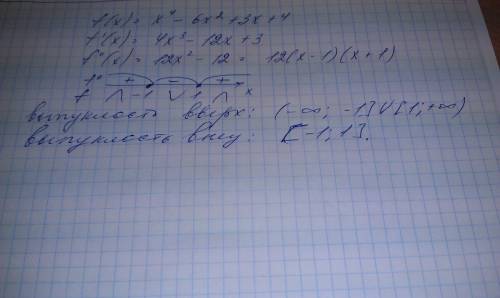 f(x) = x⁴ - 6x² + 3x + 4
f'(x) = 4x³ - 12x + 3
f''(x) = 12x² - 12 = 12(x-1)(x+1)
f'' + - +
f ∩ -1 ∪ 1 ∩ x
выпуклость вверх: (-∞; -1]∪[1; +∞)
выпуклость вниз: [-1; 1].